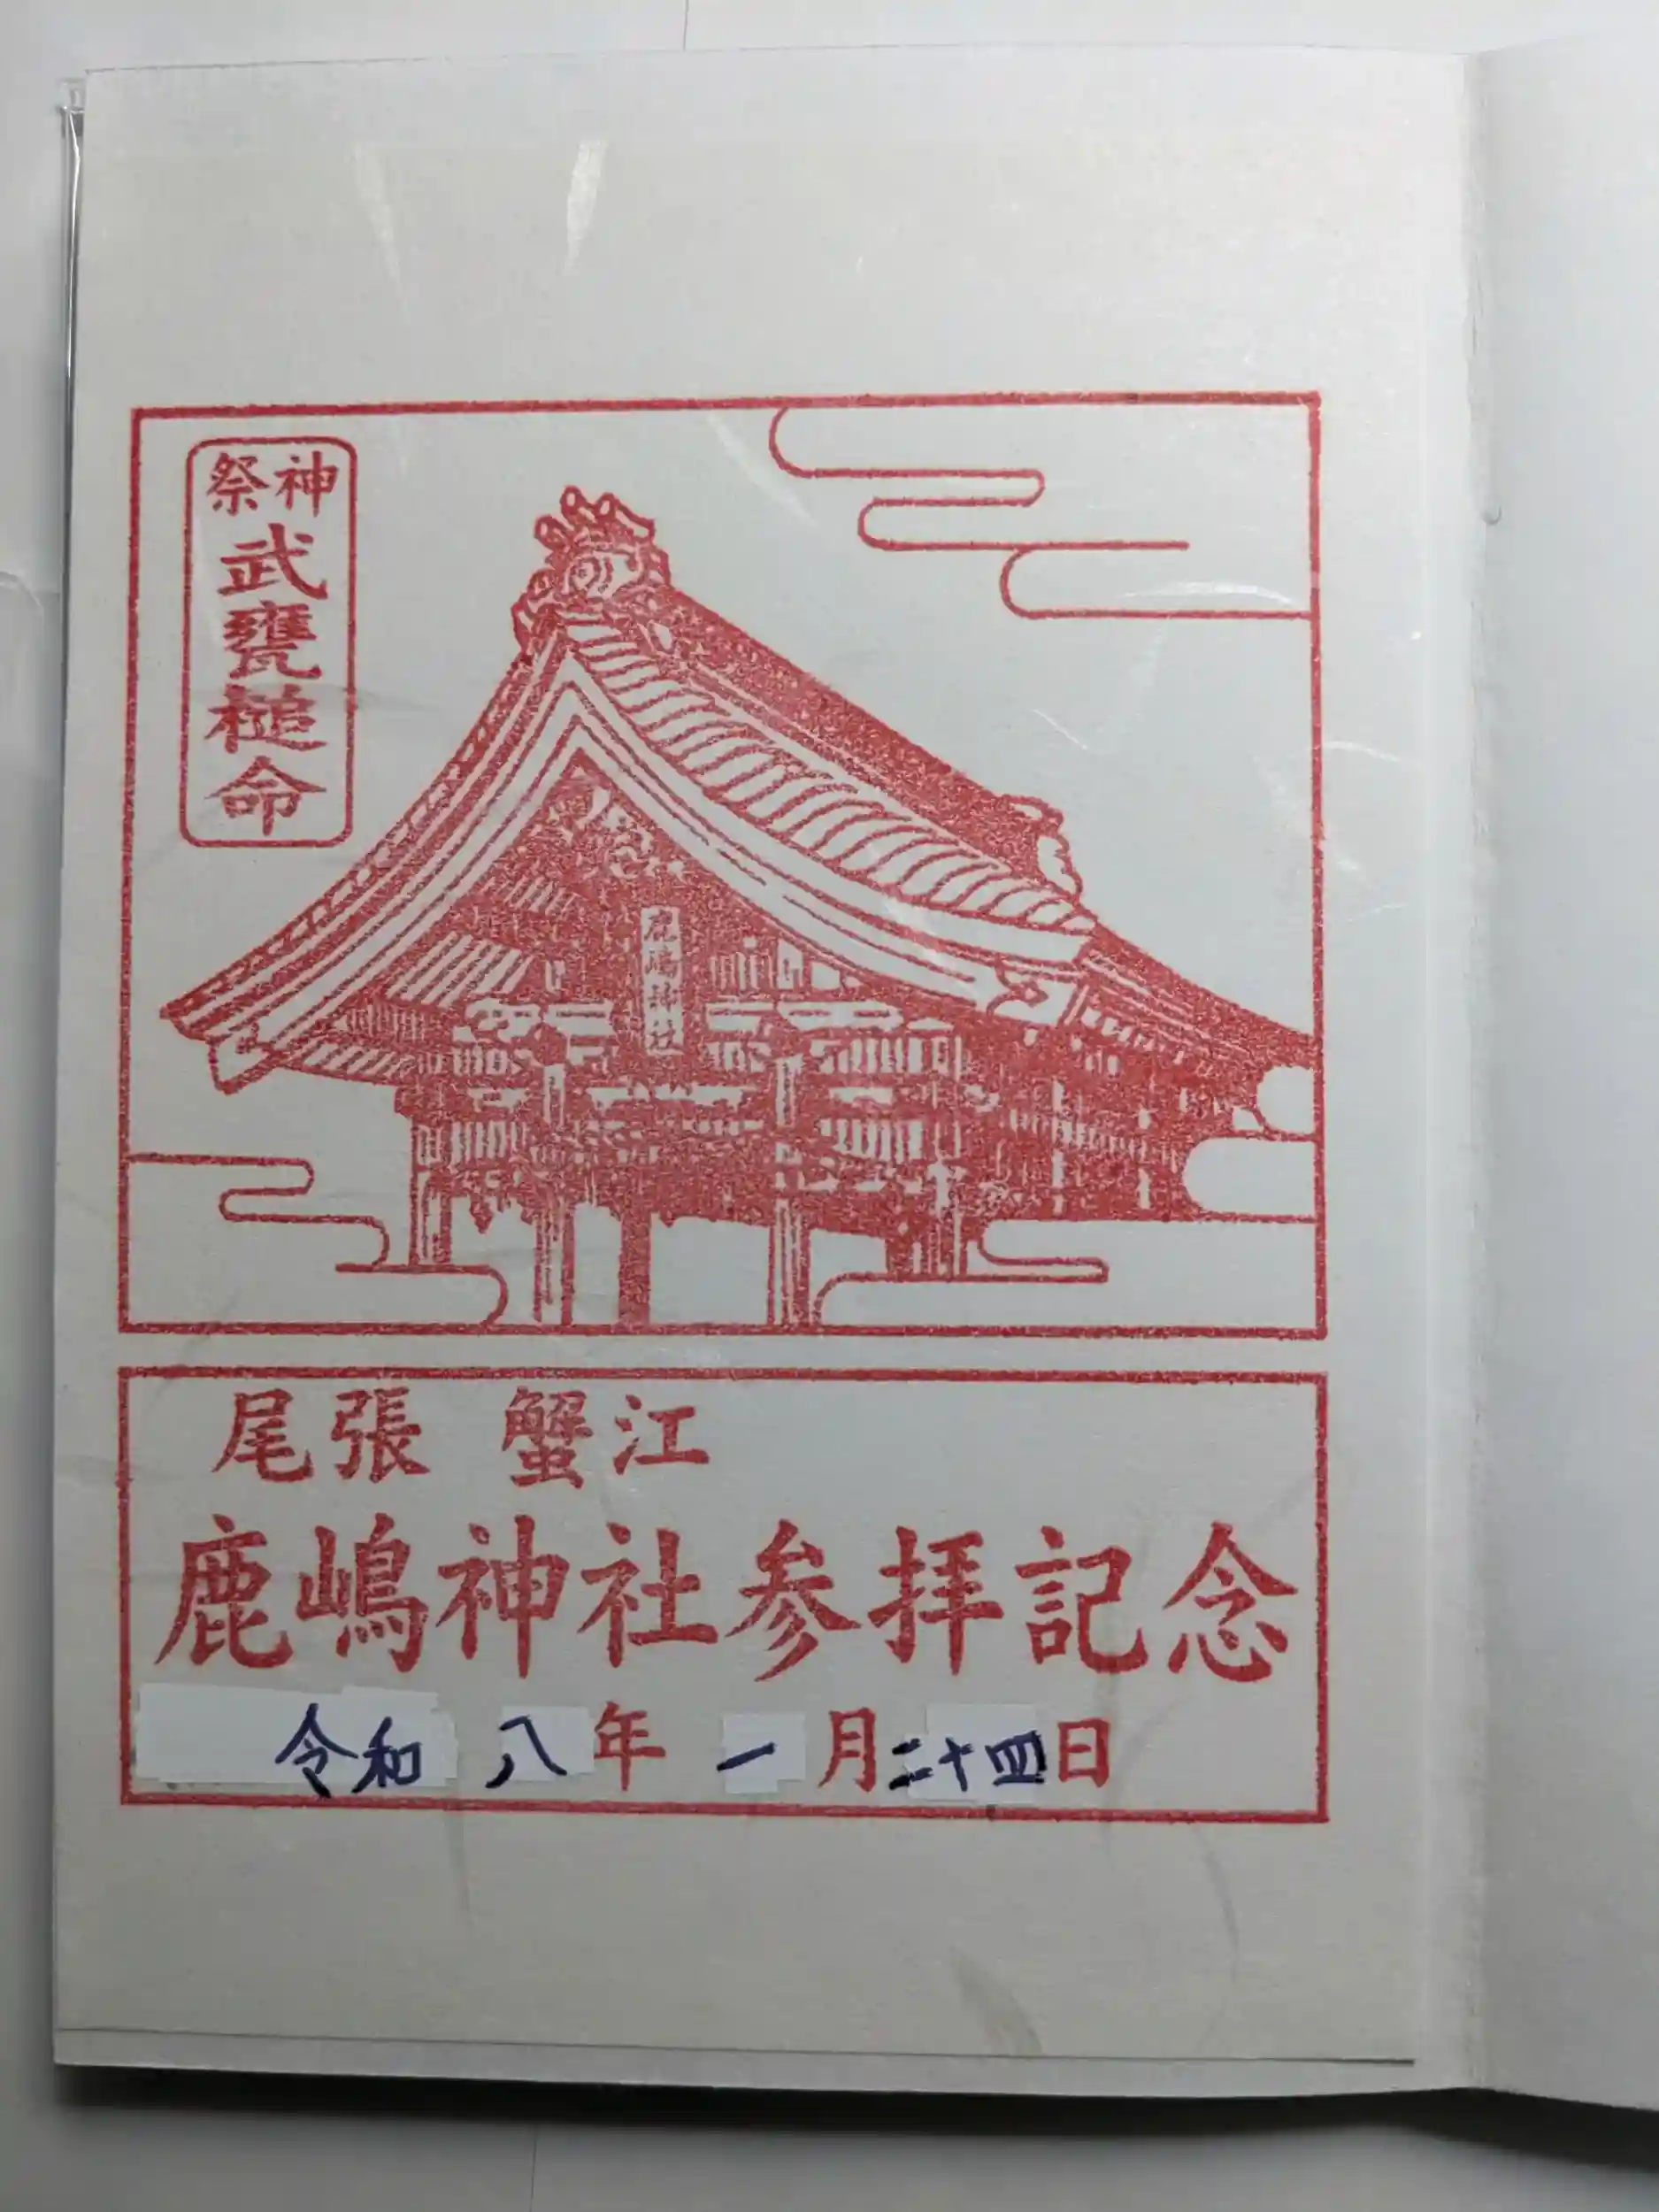 祭神
武甕槌命
鹿嶋神社
尾張 蟹江
鹿嶋神社参拝記念
令和 八年 一月二十四日